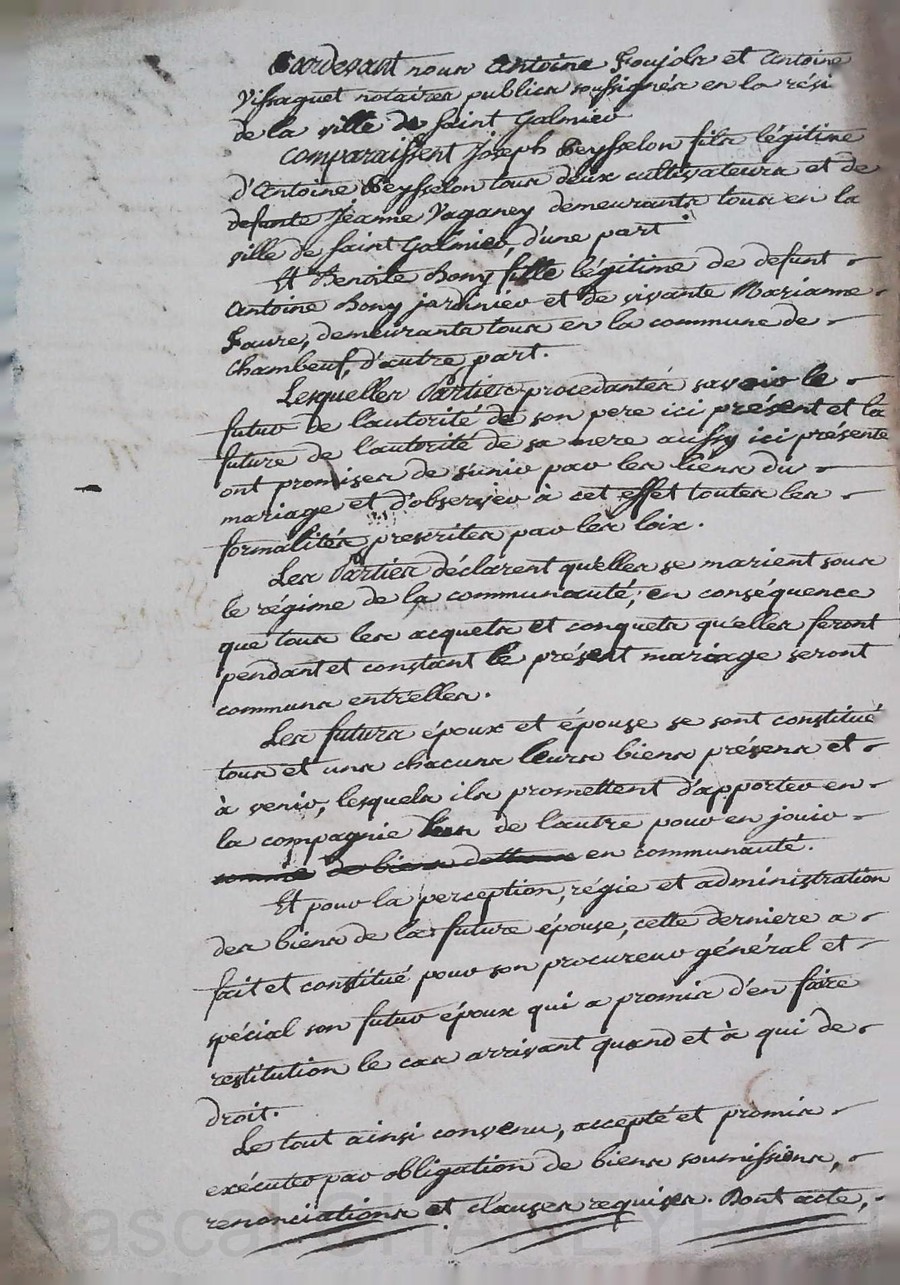 Pardevant nous Antoine Foujols et Antoine
Vissaguet notaires publics soussignés en la rési
de la ville de Saint Galmier
Comparaissent Joseph Peysselon fils légitime
d'Antoine Peysselon tous deux cultivateurs et de
defunte Jeanne Vaganey demeurants tous en la
ville de Saint Galmier, d'une part
Et Benoite Bony fille légitime de defunt
Antoine Bony jardinier et de vivante Marianne
Faure, demeurants tous en la commune de
Chambeuf, d'autre part.
Lesquelles Parties procedantes savoir le
futur de l'autorité de son pere ici présent et la
future de l'autorité de sa mere aussy ici présente
ont promises de s'unir par les liens du
mariage et d'observer à cet effet toutes les
formalités prescrites par les loix.
Les Parties déclarent qu'elles se marient sous
le régime de la communauté; en conséquence
que tous les acquets et conquets qu'elles feront
pendant et constant le présent mariage seront
communs entrelles.
Les futurs époux et épouse se sont constitué
tous et uns chacuns leurs biens présens et
à venir, lesquels ils promettent d'apporter en
la compagnie l'un de l'autre pour en jouir
comme de biens en communauté.
Et pour la perception, régie et administration
des biens de la future épouse, cette derniere a
fait et constitué pour son procureur général et
spécial son futur époux qui a promis d'en faire
restitution le cas arrivant quand et à qui de
droit.
Le tout ainsi convenu, accepté et promis
exécuter par obligation de biens soumissions,
renonciations et clauses requises. Dont acte,